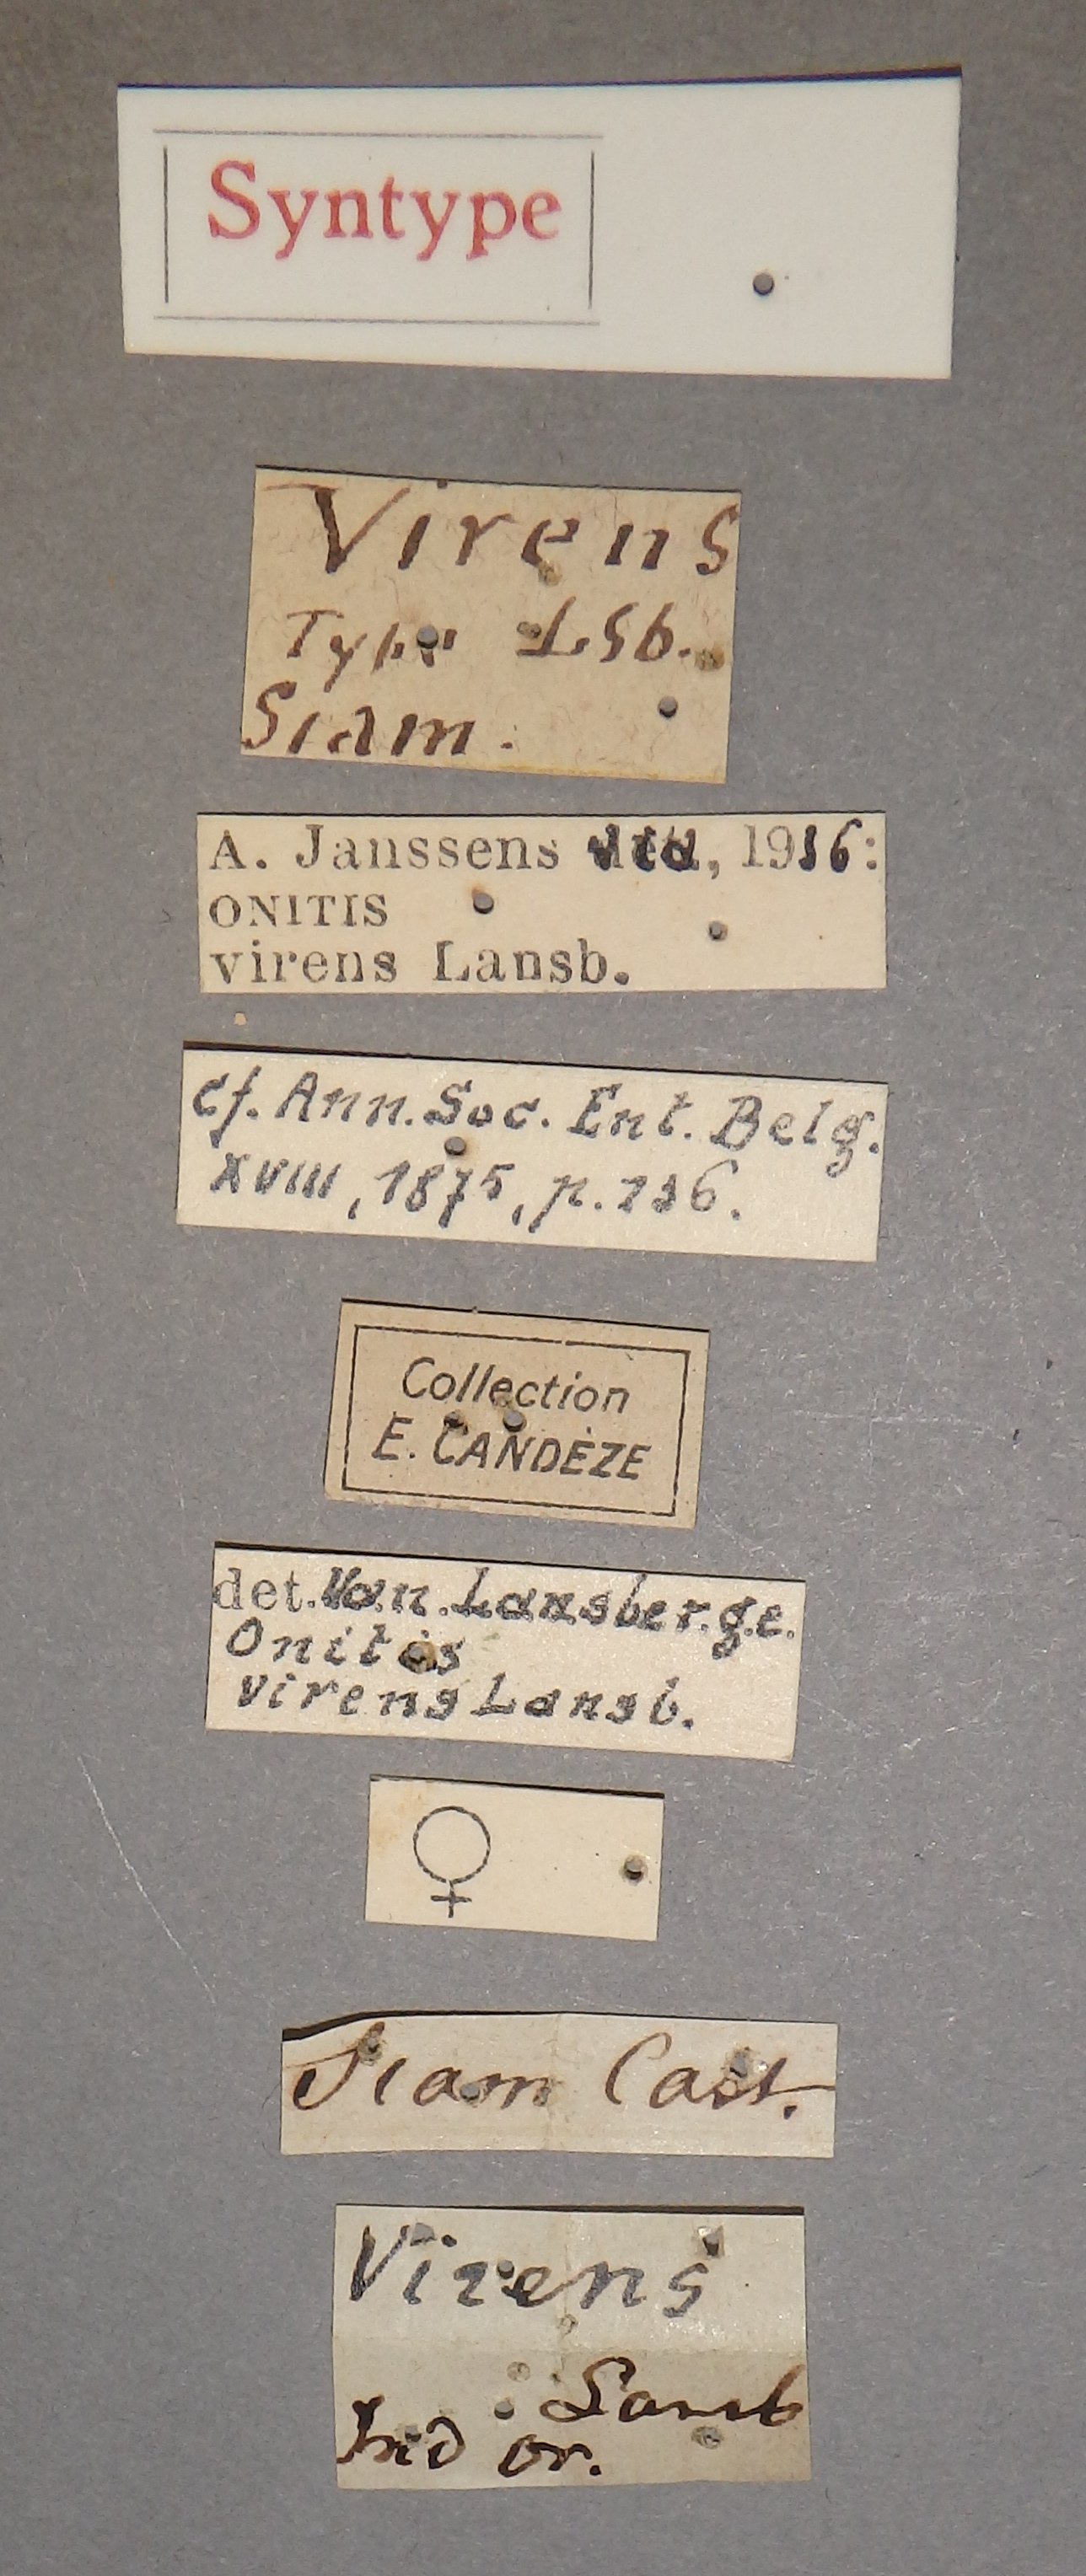 Syntype
Virens
Type Lsb.
Siam.
A. Janssens vid, 1936:
ONITIS
virens Lansb.
cf. Ann. Soc. Ent. Belg.
XVIII, 1875, p. 136.
Collection
E. CANDÈZE
det. Van Lansberge.
Onitis
virens Lansb.
♀
Siam Cast.
Virens
Lansb
Ind or.